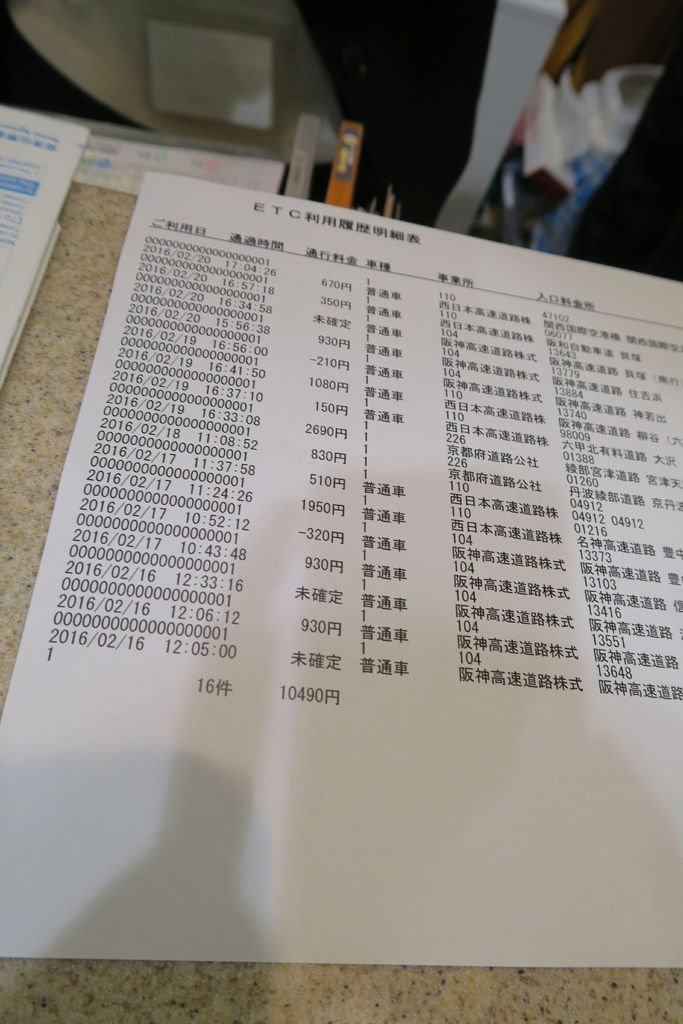 ＥＴＣ利用履歴明細表
ご利用日 通過時間 通行料金 車種 事業所 入口料金所
0000000000000000001 1 110 47102
2016/02/20 17:04:26 670円 普通車 西日本高速道路株 関西国際空港橋 関西国際空
0000000000000000001 1 110 06077
2016/02/20 16:57:18 350円 普通車 西日本高速道路株 阪和自動車道 貝塚
0000000000000000001 1 104 13643
2016/02/20 16:34:58 未確定 普通車 阪神高速道路株式 阪神高速道路 貝塚（南行
0000000000000000001 1 104 13779
2016/02/20 15:56:38 930円 普通車 阪神高速道路株式 阪神高速道路 住吉浜
0000000000000000001 1 104 13884
2016/02/19 16:56:00 -210円 普通車 阪神高速道路株式 阪神高速道路 神若出
0000000000000000001 1 104 13740
2016/02/19 16:41:50 1080円 普通車 阪神高速道路株式 阪神高速道路 柳谷（六
0000000000000000001 1 110 98009
2016/02/19 16:37:10 150円 普通車 西日本高速道路株 六甲北有料道路 大沢
0000000000000000001 1 226 01388
2016/02/19 16:33:08 2690円 普通車 京都府道路公社 綾部宮津道路 宮津天
0000000000000000001 1 226 01260
2016/02/18 11:08:52 830円 普通車 京都府道路公社 丹波綾部道路 京丹
0000000000000000001 1 110 04912
2016/02/17 11:37:58 510円 普通車 西日本高速道路株 04912 04912
0000000000000000001 1 110 01216
2016/02/17 11:24:26 1950円 普通車 西日本高速道路株 名神高速道路 豊中
0000000000000000001 1 104 13373
2016/02/17 10:52:12 -320円 普通車 阪神高速道路株式 阪神高速道路 豊
0000000000000000001 1 104 13103
2016/02/17 10:43:48 930円 普通車 阪神高速道路株式 阪神高速道路
0000000000000000001 1 104 13416
2016/02/16 12:33:16 未確定 普通車 阪神高速道路株式 阪神高速道路
0000000000000000001 1 104 13551
2016/02/16 12:06:12 930円 普通車 阪神高速道路株式 阪神高速道路
0000000000000000001 1 104 13648
2016/02/16 12:05:00 未確定 普通車 阪神高速道路株式 阪神高速道路
1
16件 10490円